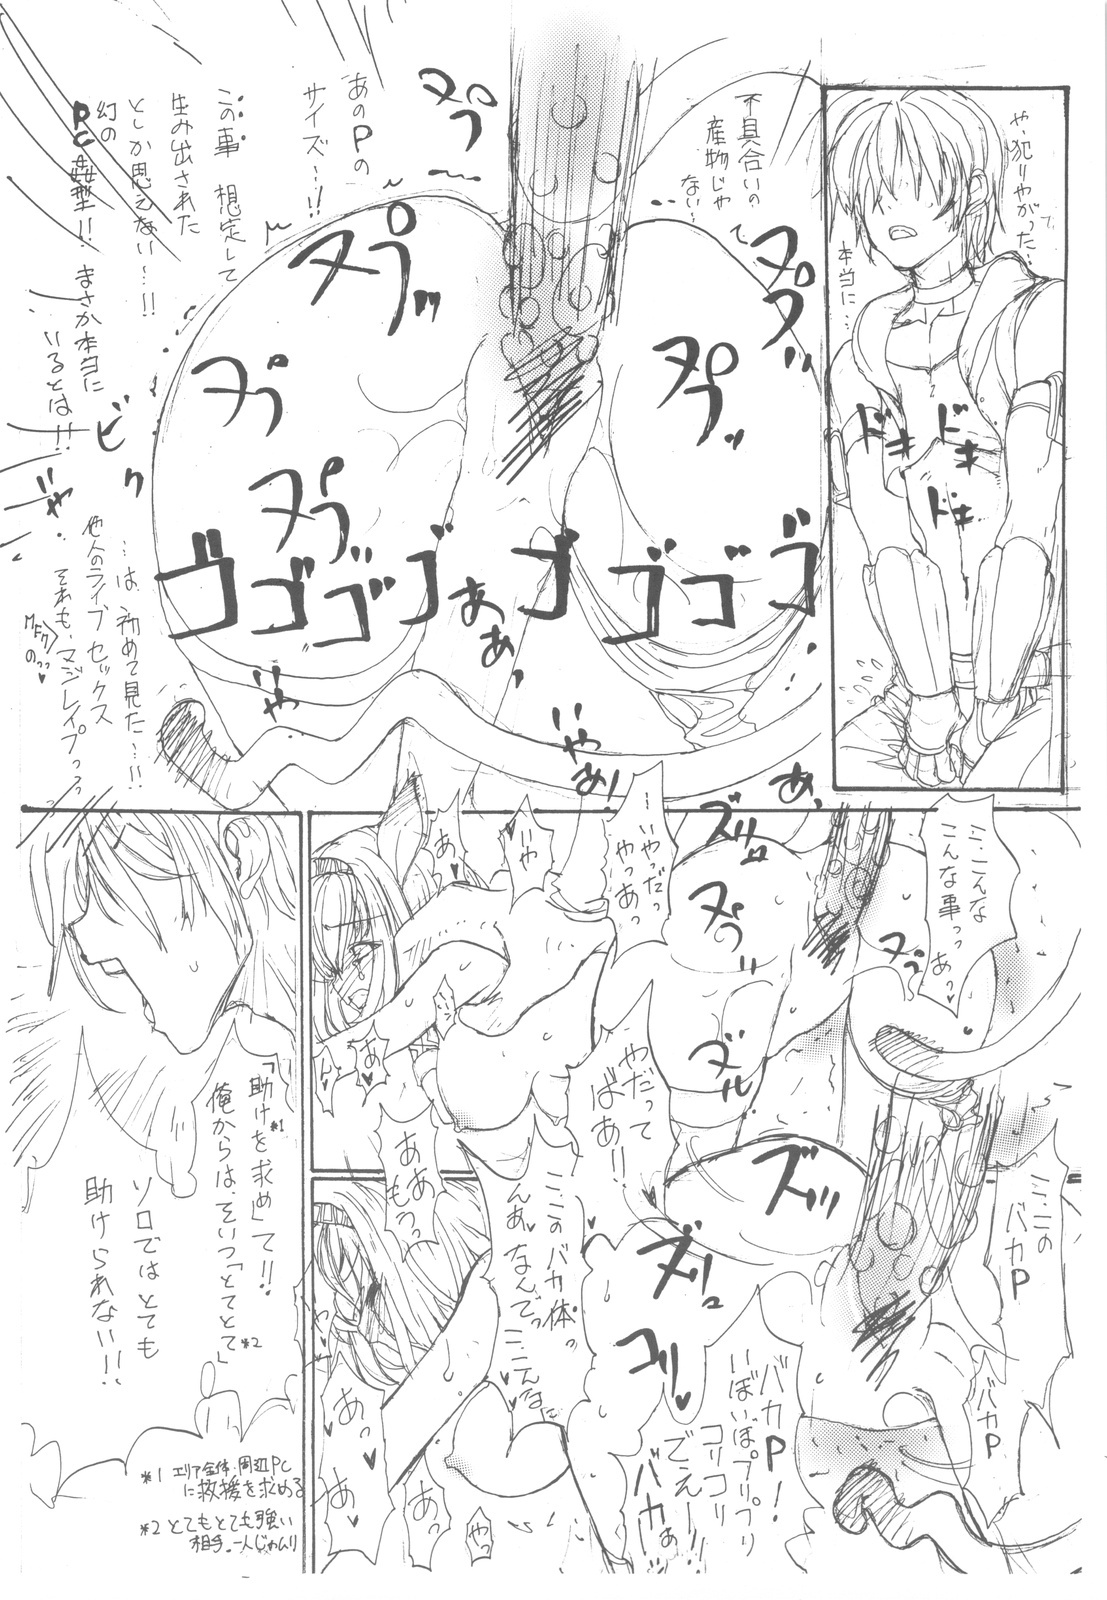 や、犯りやがった…
本当に…
ドキ
ドキ
ドキ
不具合いの
産物じゃ
ない…
あのPの
サイズ…!!
この事 想定して
生み出された
としか思えない…!!
幻の
PC姦型!! まさか本当に
いるとは!!
…は、初めて見た…!!
他人のライブセックス
それも、マジレイプっっっ
ヌプ
ヌプッ
ヌプッ
ヌプ
ヌプッ
ヌプ
ゴゴゴゴゴゴゴゴ
ビク
いや
ああ
いや
いや
あ
あ
ミ、こんな
こんな事っっ あっ
…いやっだっ
やっあっ
いや
あ
ズリュ
ヌプッ
ヌプ
ズル
あ
ん
ミ、この
バカP
バカP
やだって
ばあ!!
ズッ
ズリュ
コリッ
バカP!
いぼいぼプリプリ
コリコリ
でえー!!
バカぁ
ミ、このバカ体っ
んあ なんでっ ミ、こんなに
ああ
もっっ
あっ
あ
あっ
やっ
「助けを求め」て!!
*1
俺からは、そいつ「とてとて」
*2
ソロではとても
助けられない!!
*1 エリア全体・周辺PC
に救援を求める
*2 とてもとても強い
相手。一人じゃムリ